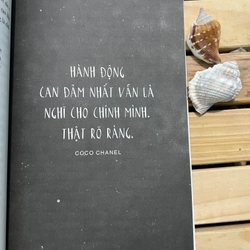 HÀNH ĐỘNG
CAN ĐẢM NHẤT VẪN LÀ
NGHĨ CHO CHÍNH MÌNH.
THẬT RÕ RÀNG.
COCO CHANEL